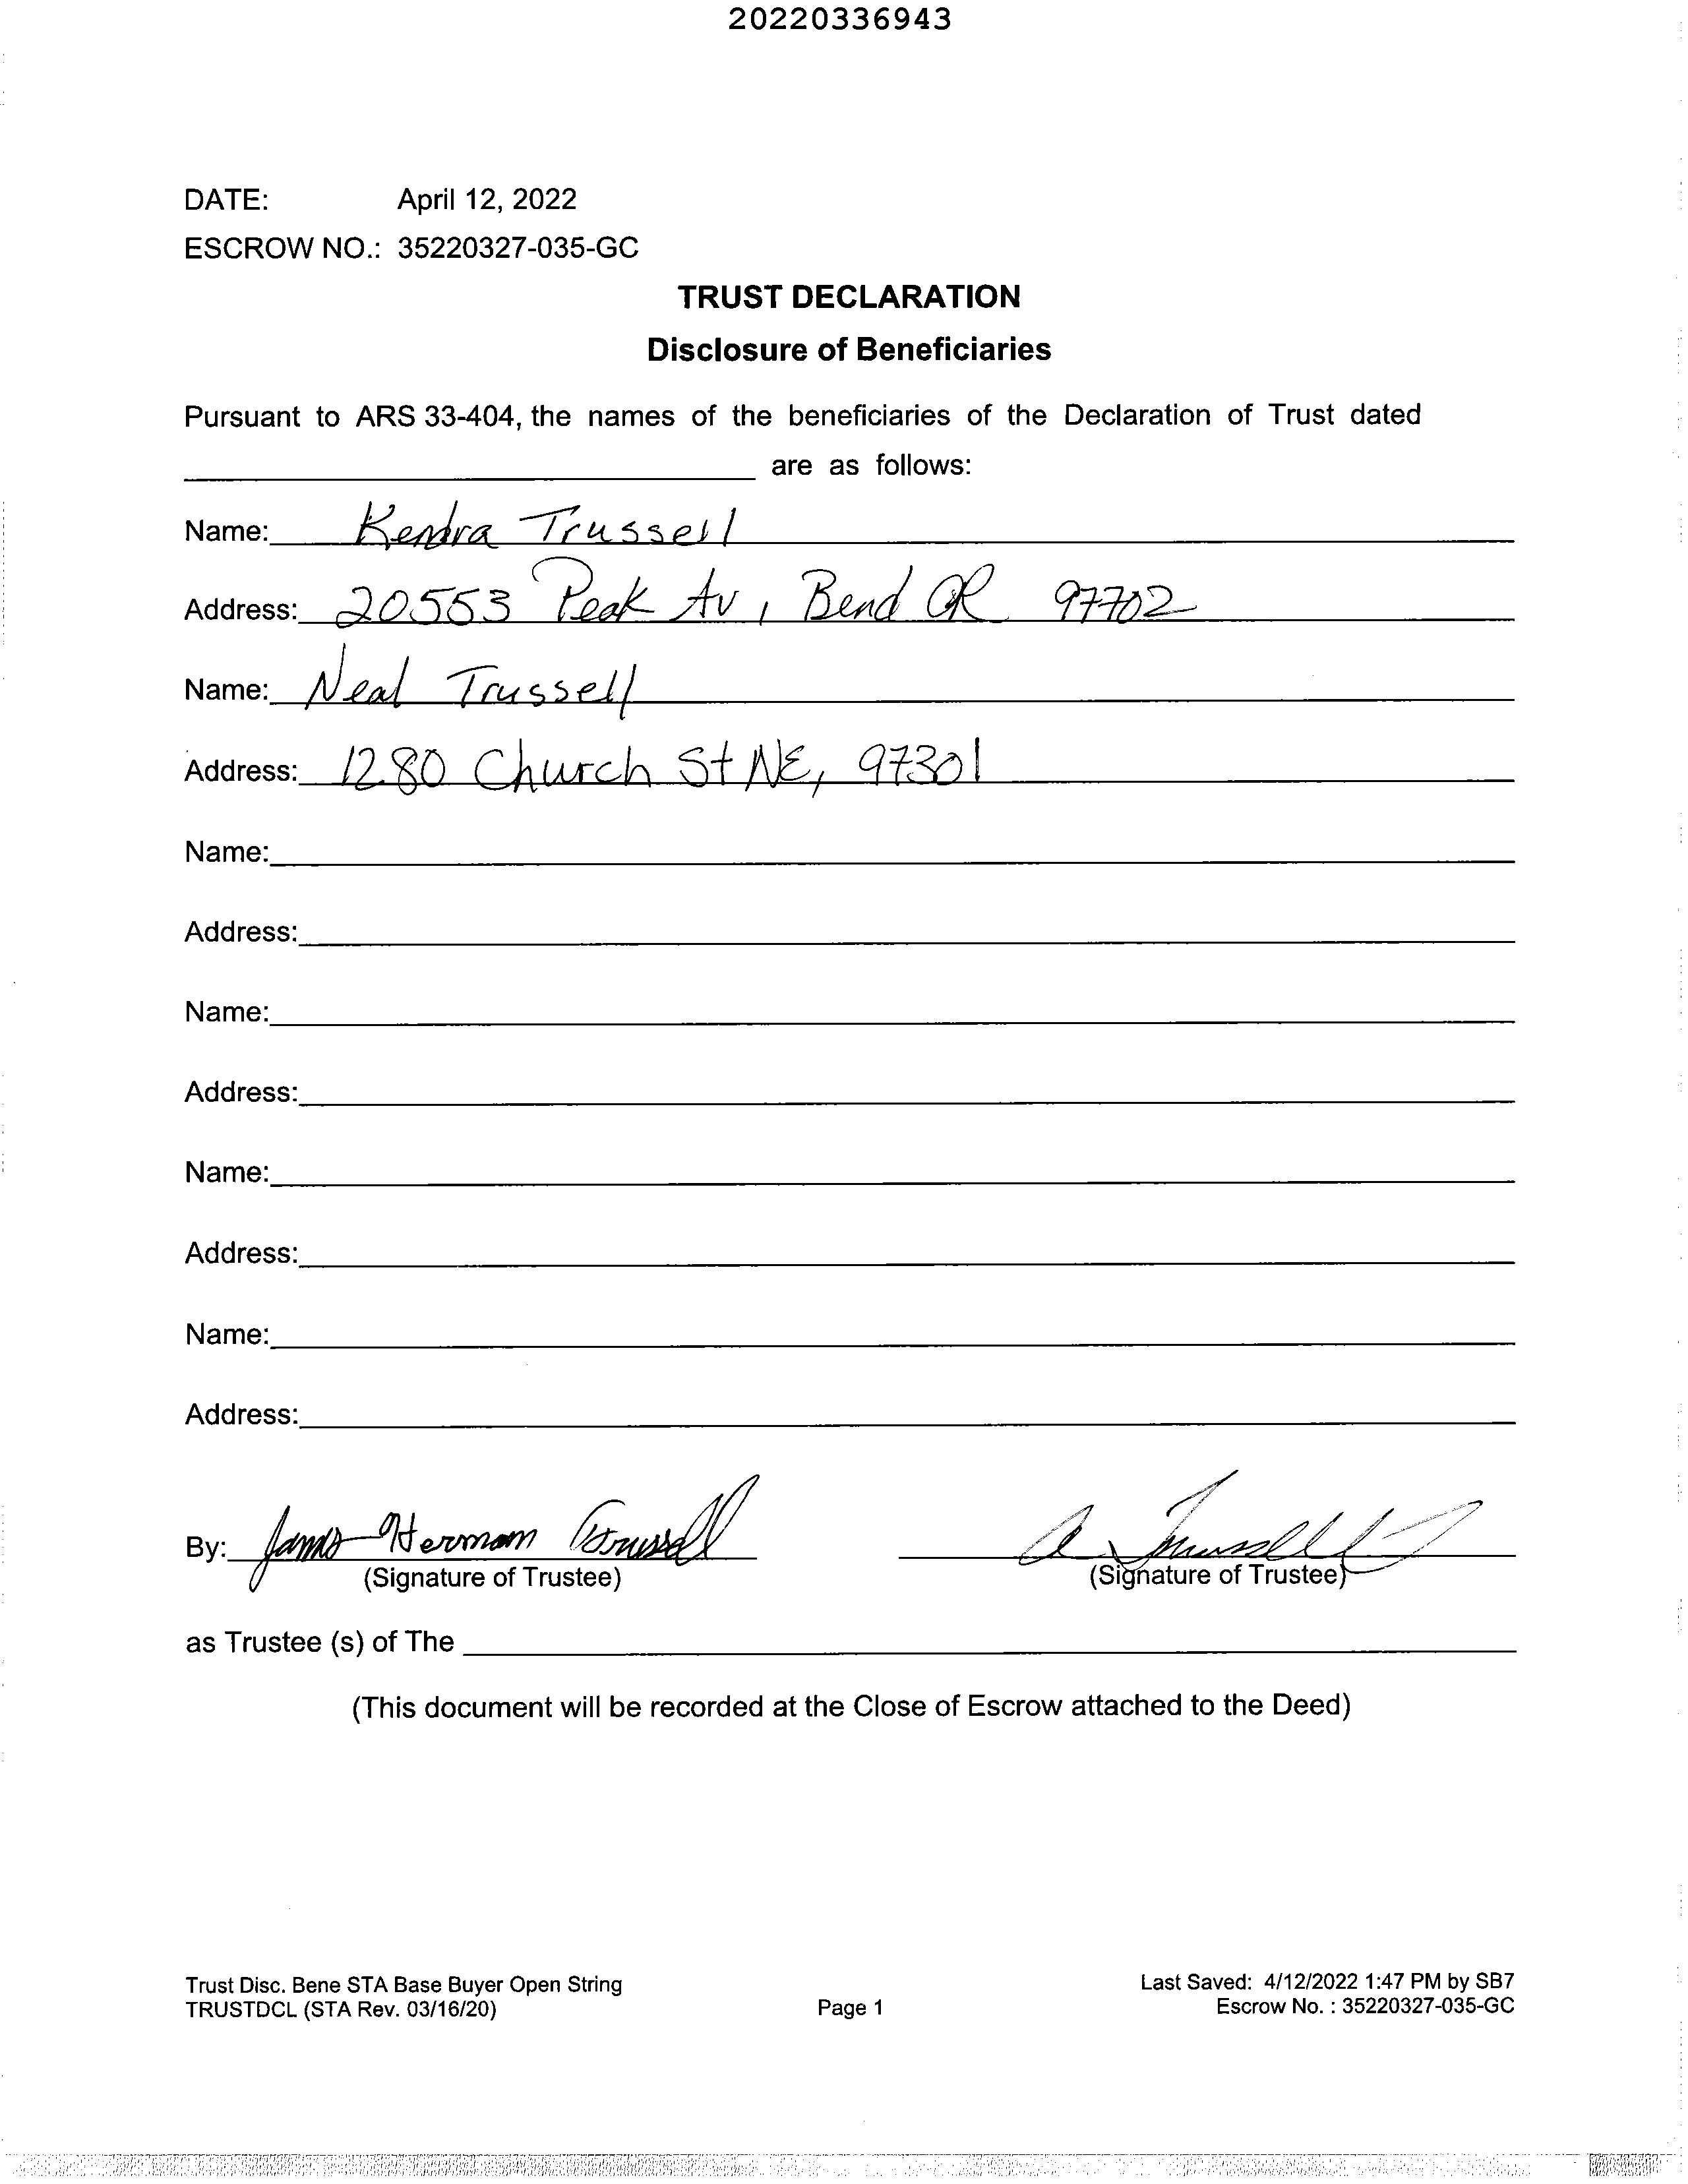 20220336943
DATE: April 12, 2022
ESCROW NO.: 35220327-035-GC
TRUST DECLARATION
Disclosure of Beneficiaries
Pursuant to ARS 33-404, the names of the beneficiaries of the Declaration of Trust dated
are as follows:
Name: Kendra Trussell
Address: 20553 Peak Av, Bend OR 97702
Name: Neal Trussell
Address: 1280 Church St NE, 97301
Name:
Address:
Name:
Address:
Name:
Address:
Name:
Address:
By: James Herman Trussell a Trussell
(Signature of Trustee) (Signature of Trustee)
as Trustee (s) of The
(This document will be recorded at the Close of Escrow attached to the Deed)
Trust Disc. Bene STA Base Buyer Open String Last Saved: 4/12/2022 1:47 PM by SB7
TRUSTDCL (STA Rev. 03/16/20) Page 1 Escrow No. : 35220327-035-GC